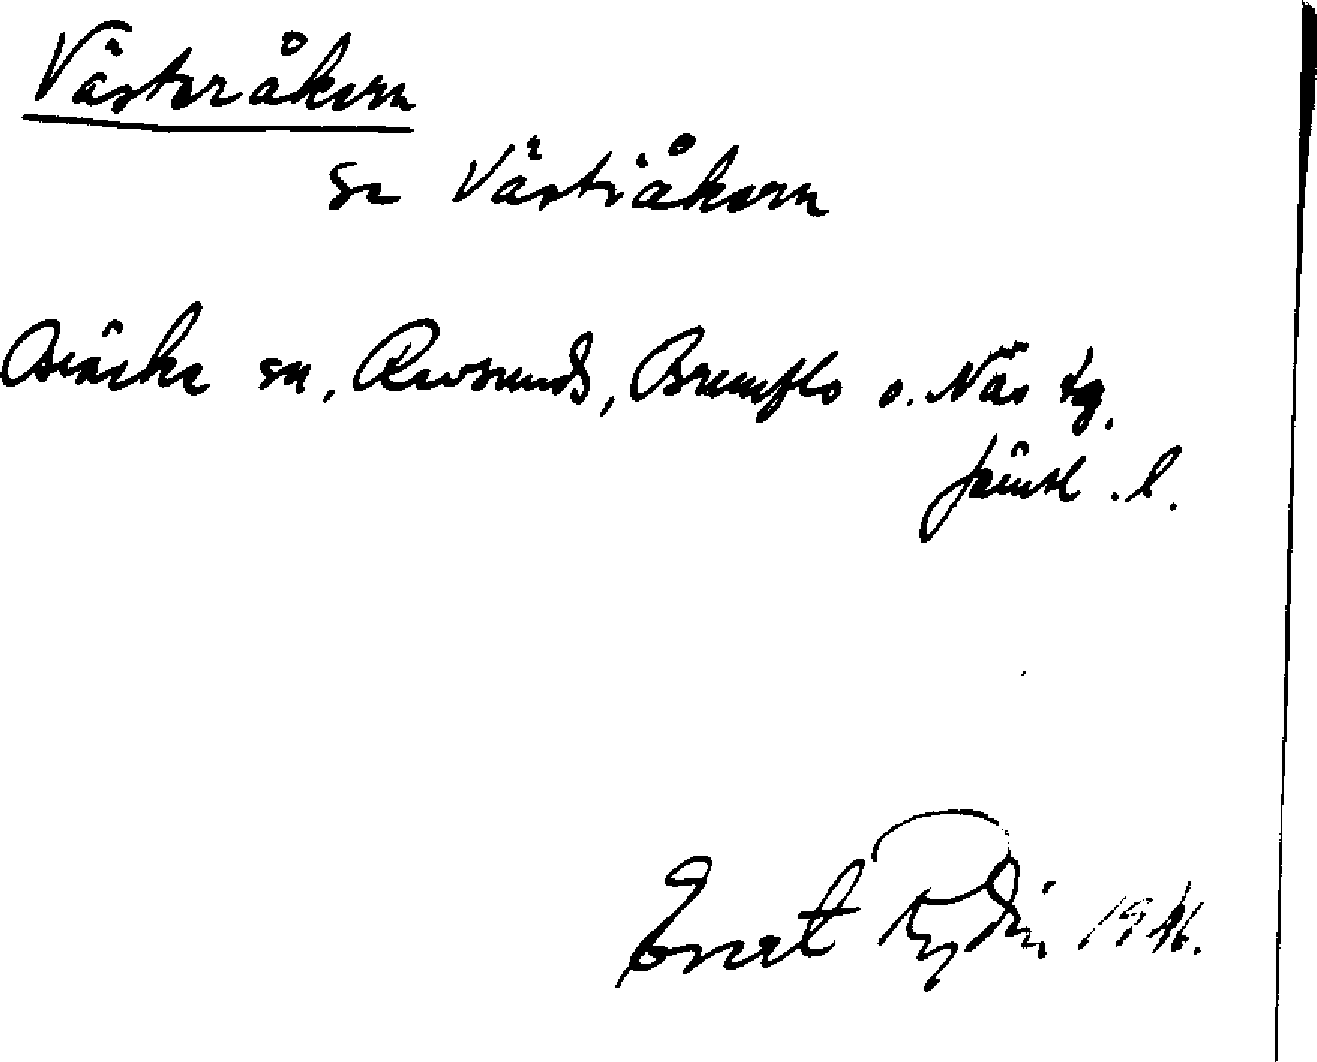 Västeråkern
se Västiåkern
Bräcke sn, Revsunds, Brunflo o. Näs tg.
Jämtl. l.
Evert Rydin 1946.